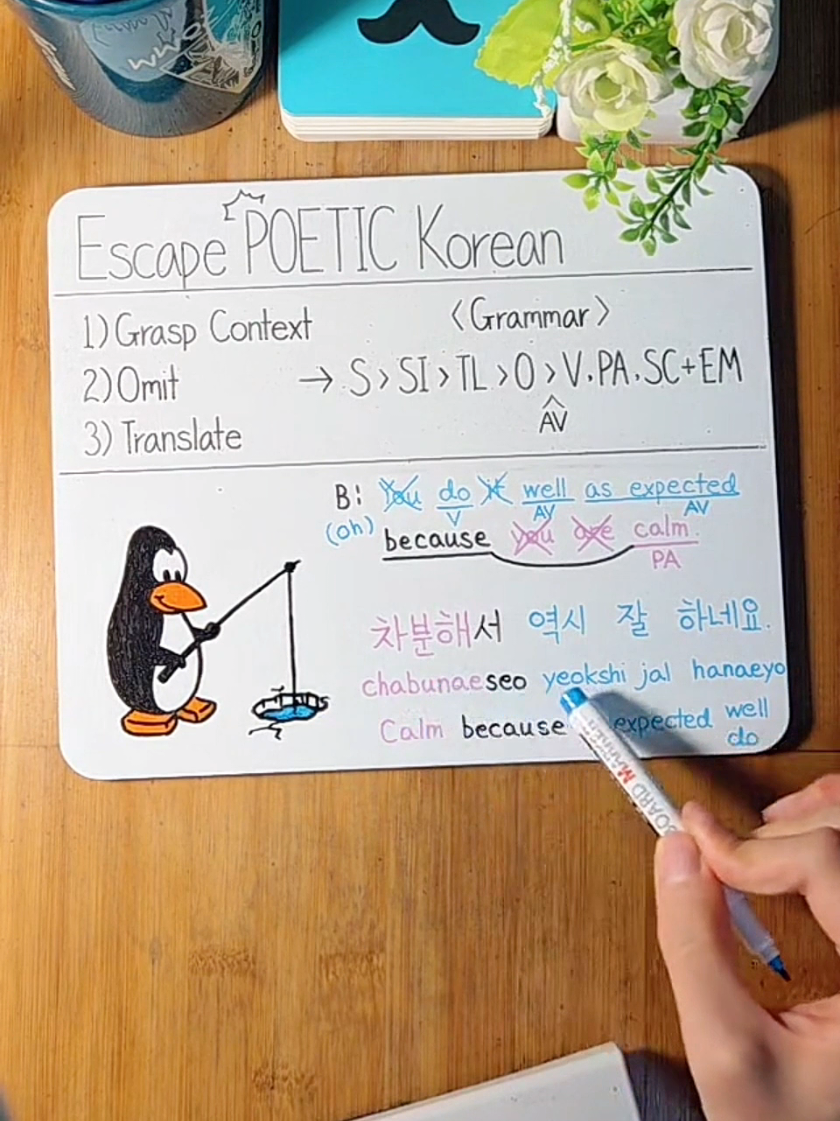 Escape POETIC Korean
1) Grasp Context
<Grammar>
2) Omit
→ S > SI > TL > O > V, PA, SC + EM
AV
3) Translate
B: You do it well as expected
V AV AV
(oh) because you are calm.
PA
차분해서 역시 잘 하네요.
chabunaeseo yeokshi jal hanaeyo
Calm because expected well
do
BOARD MARKER